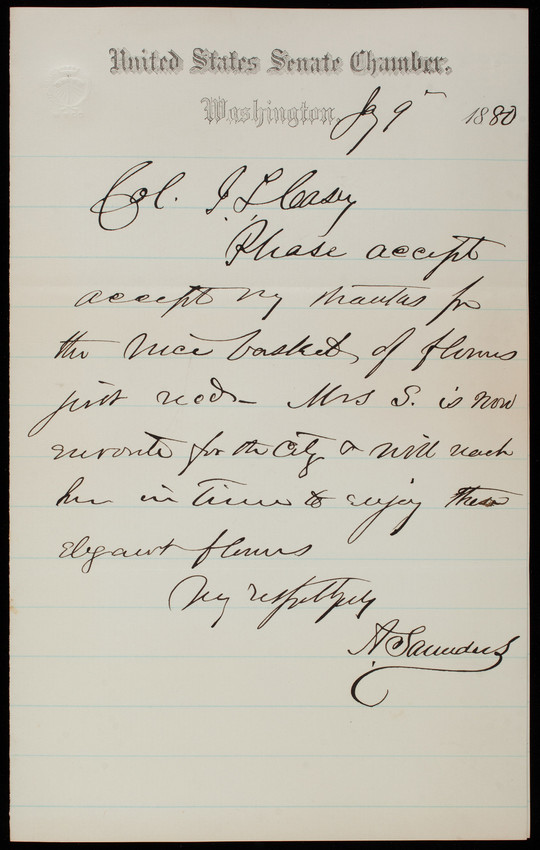 United States Senate Chamber.
Washington, Jany 9th 1880
Col. T L Casey
Please accept
accept my thanks for
the nice basket of flowers
just recd - Mrs S. is now
enroute for the City & will reach
here in time to enjoy these
elegant flowers
Very respectfully
A Saunders